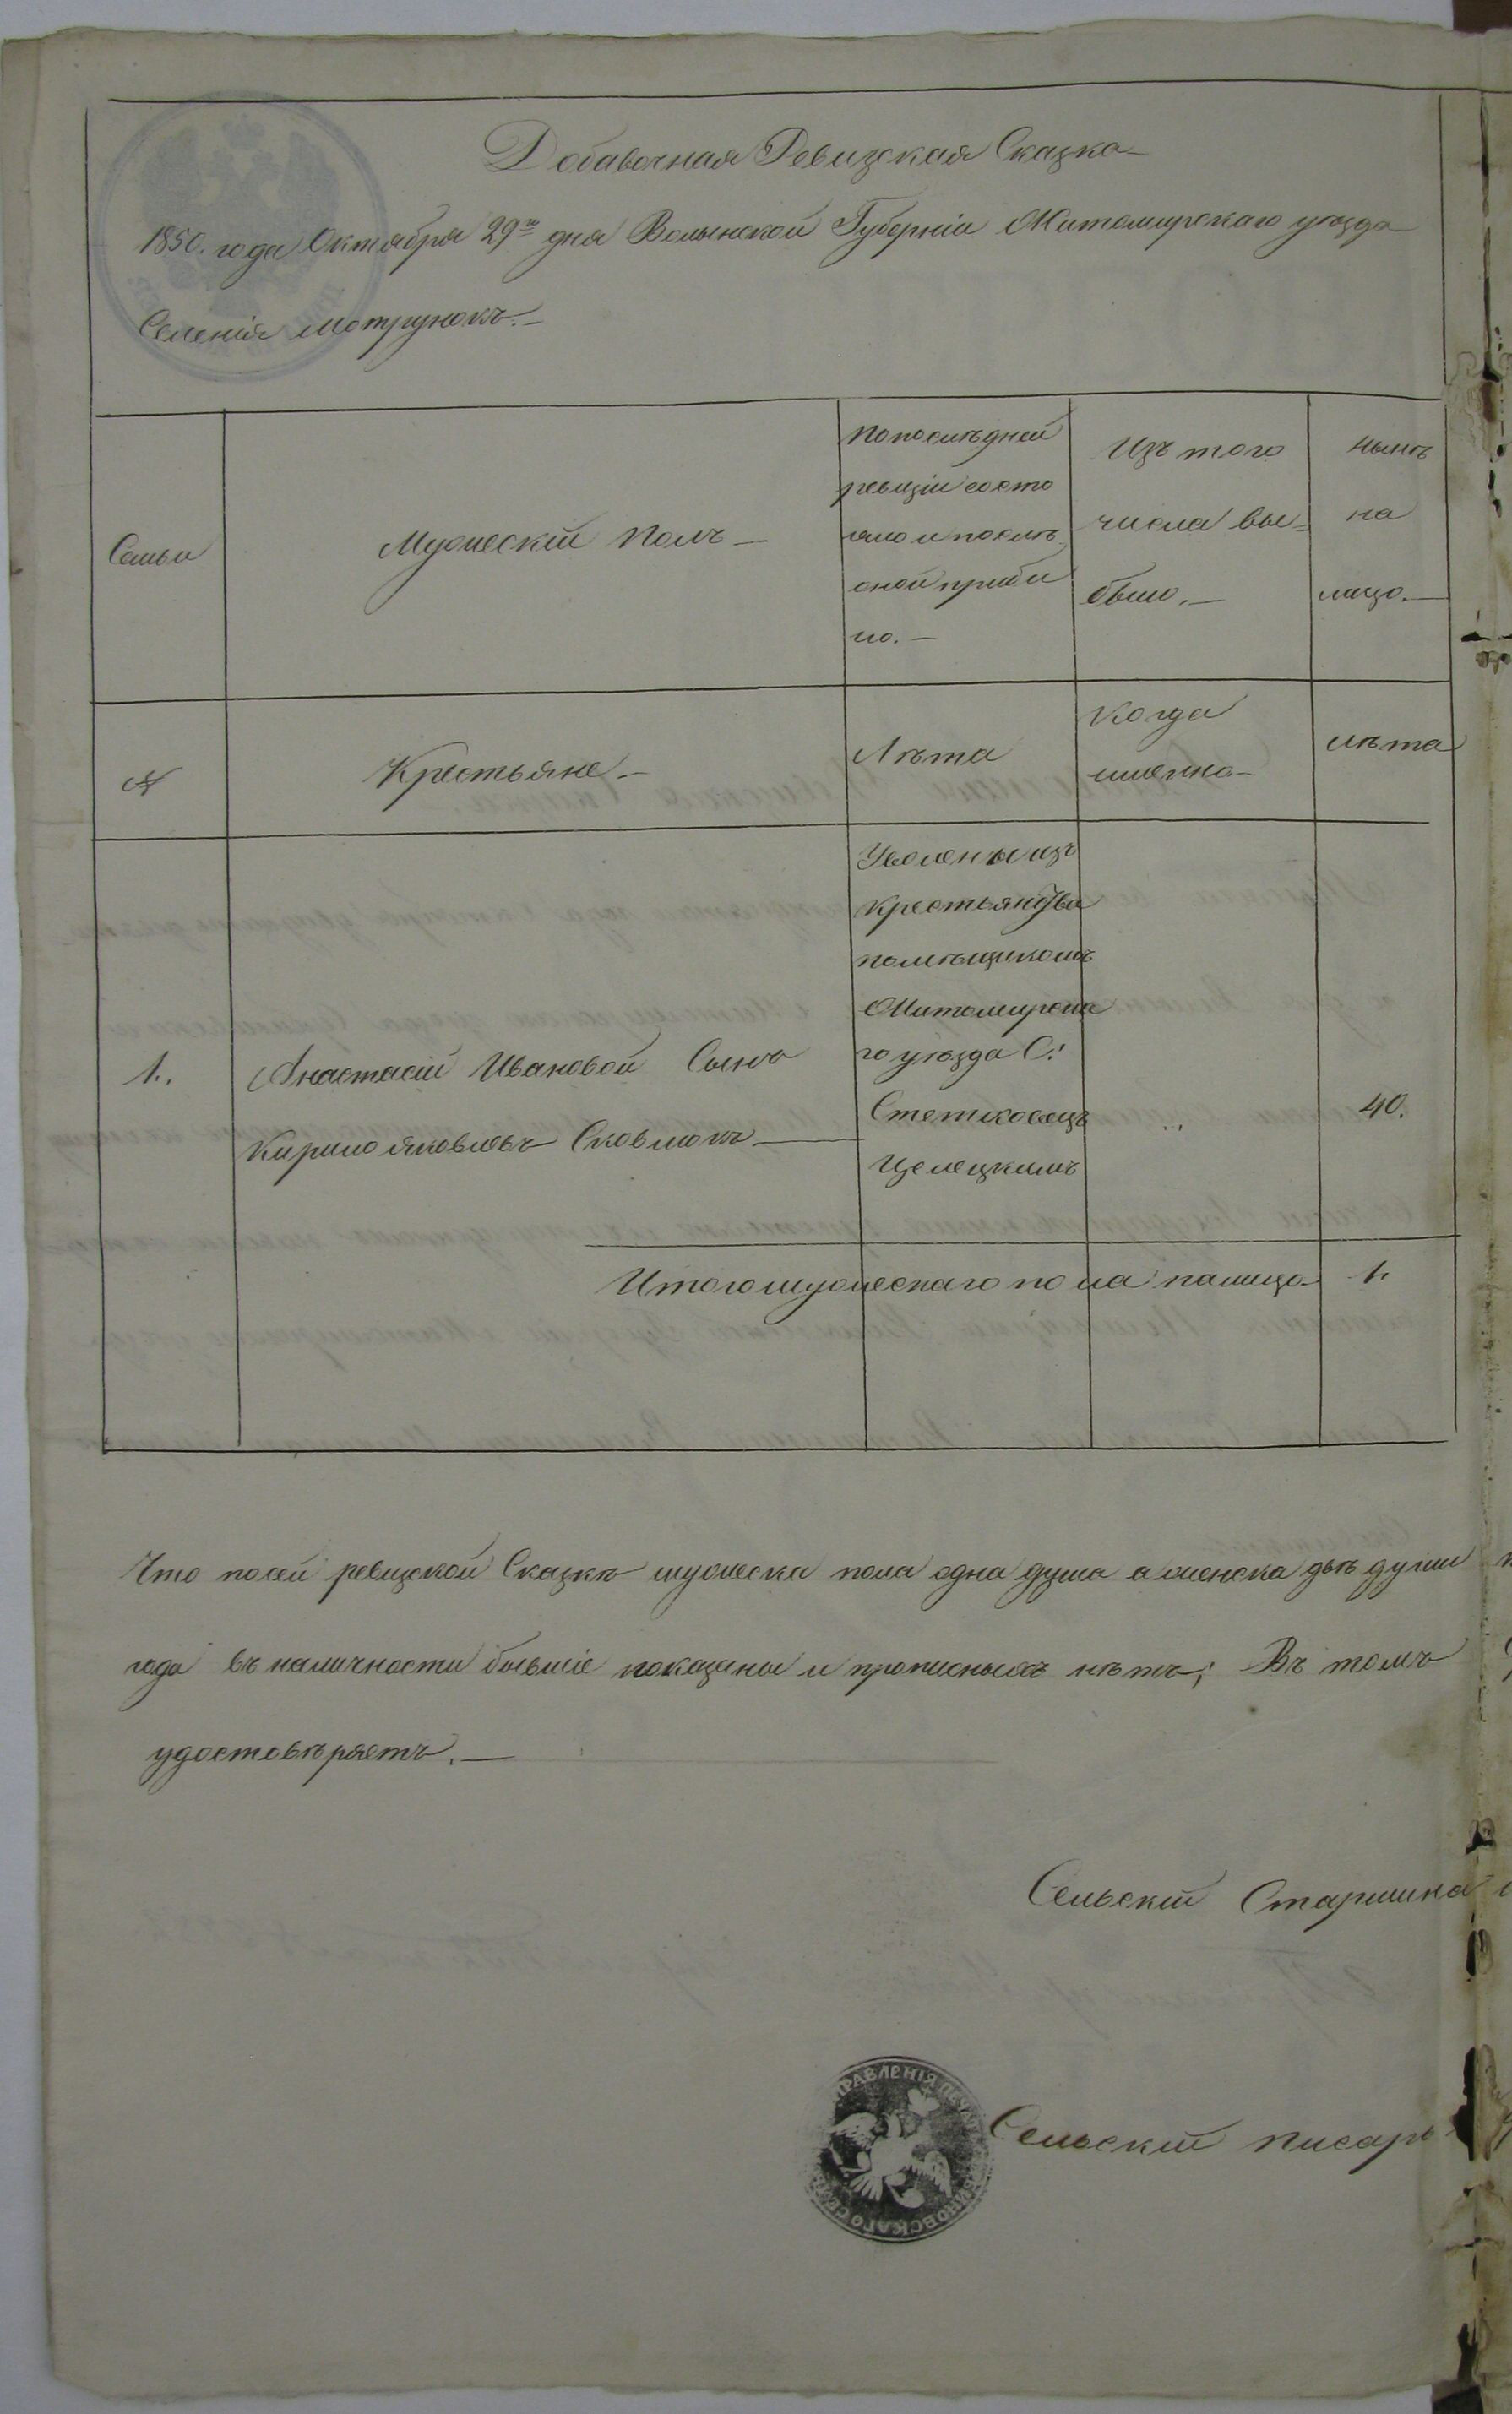 Добавочная Ревизская Сказка
1850. года Октября 29го дня Волынской Губерніи Житомирскаго уѣзда
Селенія Мотрунокъ.
Семьи
Мужескій Полъ
По последней
ревизіи состо
яло и послѣ
оной прибы
ло.
Изъ того
числа вы=
было.
Нынѣ
на
лицо.
№
Крестьяне.
Лѣта
Когда
именно
лѣта
1.
Анастасіи Ивановой Сынъ
Кирило Яковлевъ Сковлюкъ
Уволены изъ
крестьянства
помѣщикомъ
Житомирска
го уѣзда С:
Стетковецъ
Целецкимъ
40.
Итого мужескаго пола налицо
1.
Что по сей ревизской Сказкѣ мужеска пола одна душа а женска двѣ души
года въ наличности бывшіе показаны и прописныхъ нѣтъ; Въ томъ
удостовѣряетъ.
Сельскій Старшина
Сельскій Писарь